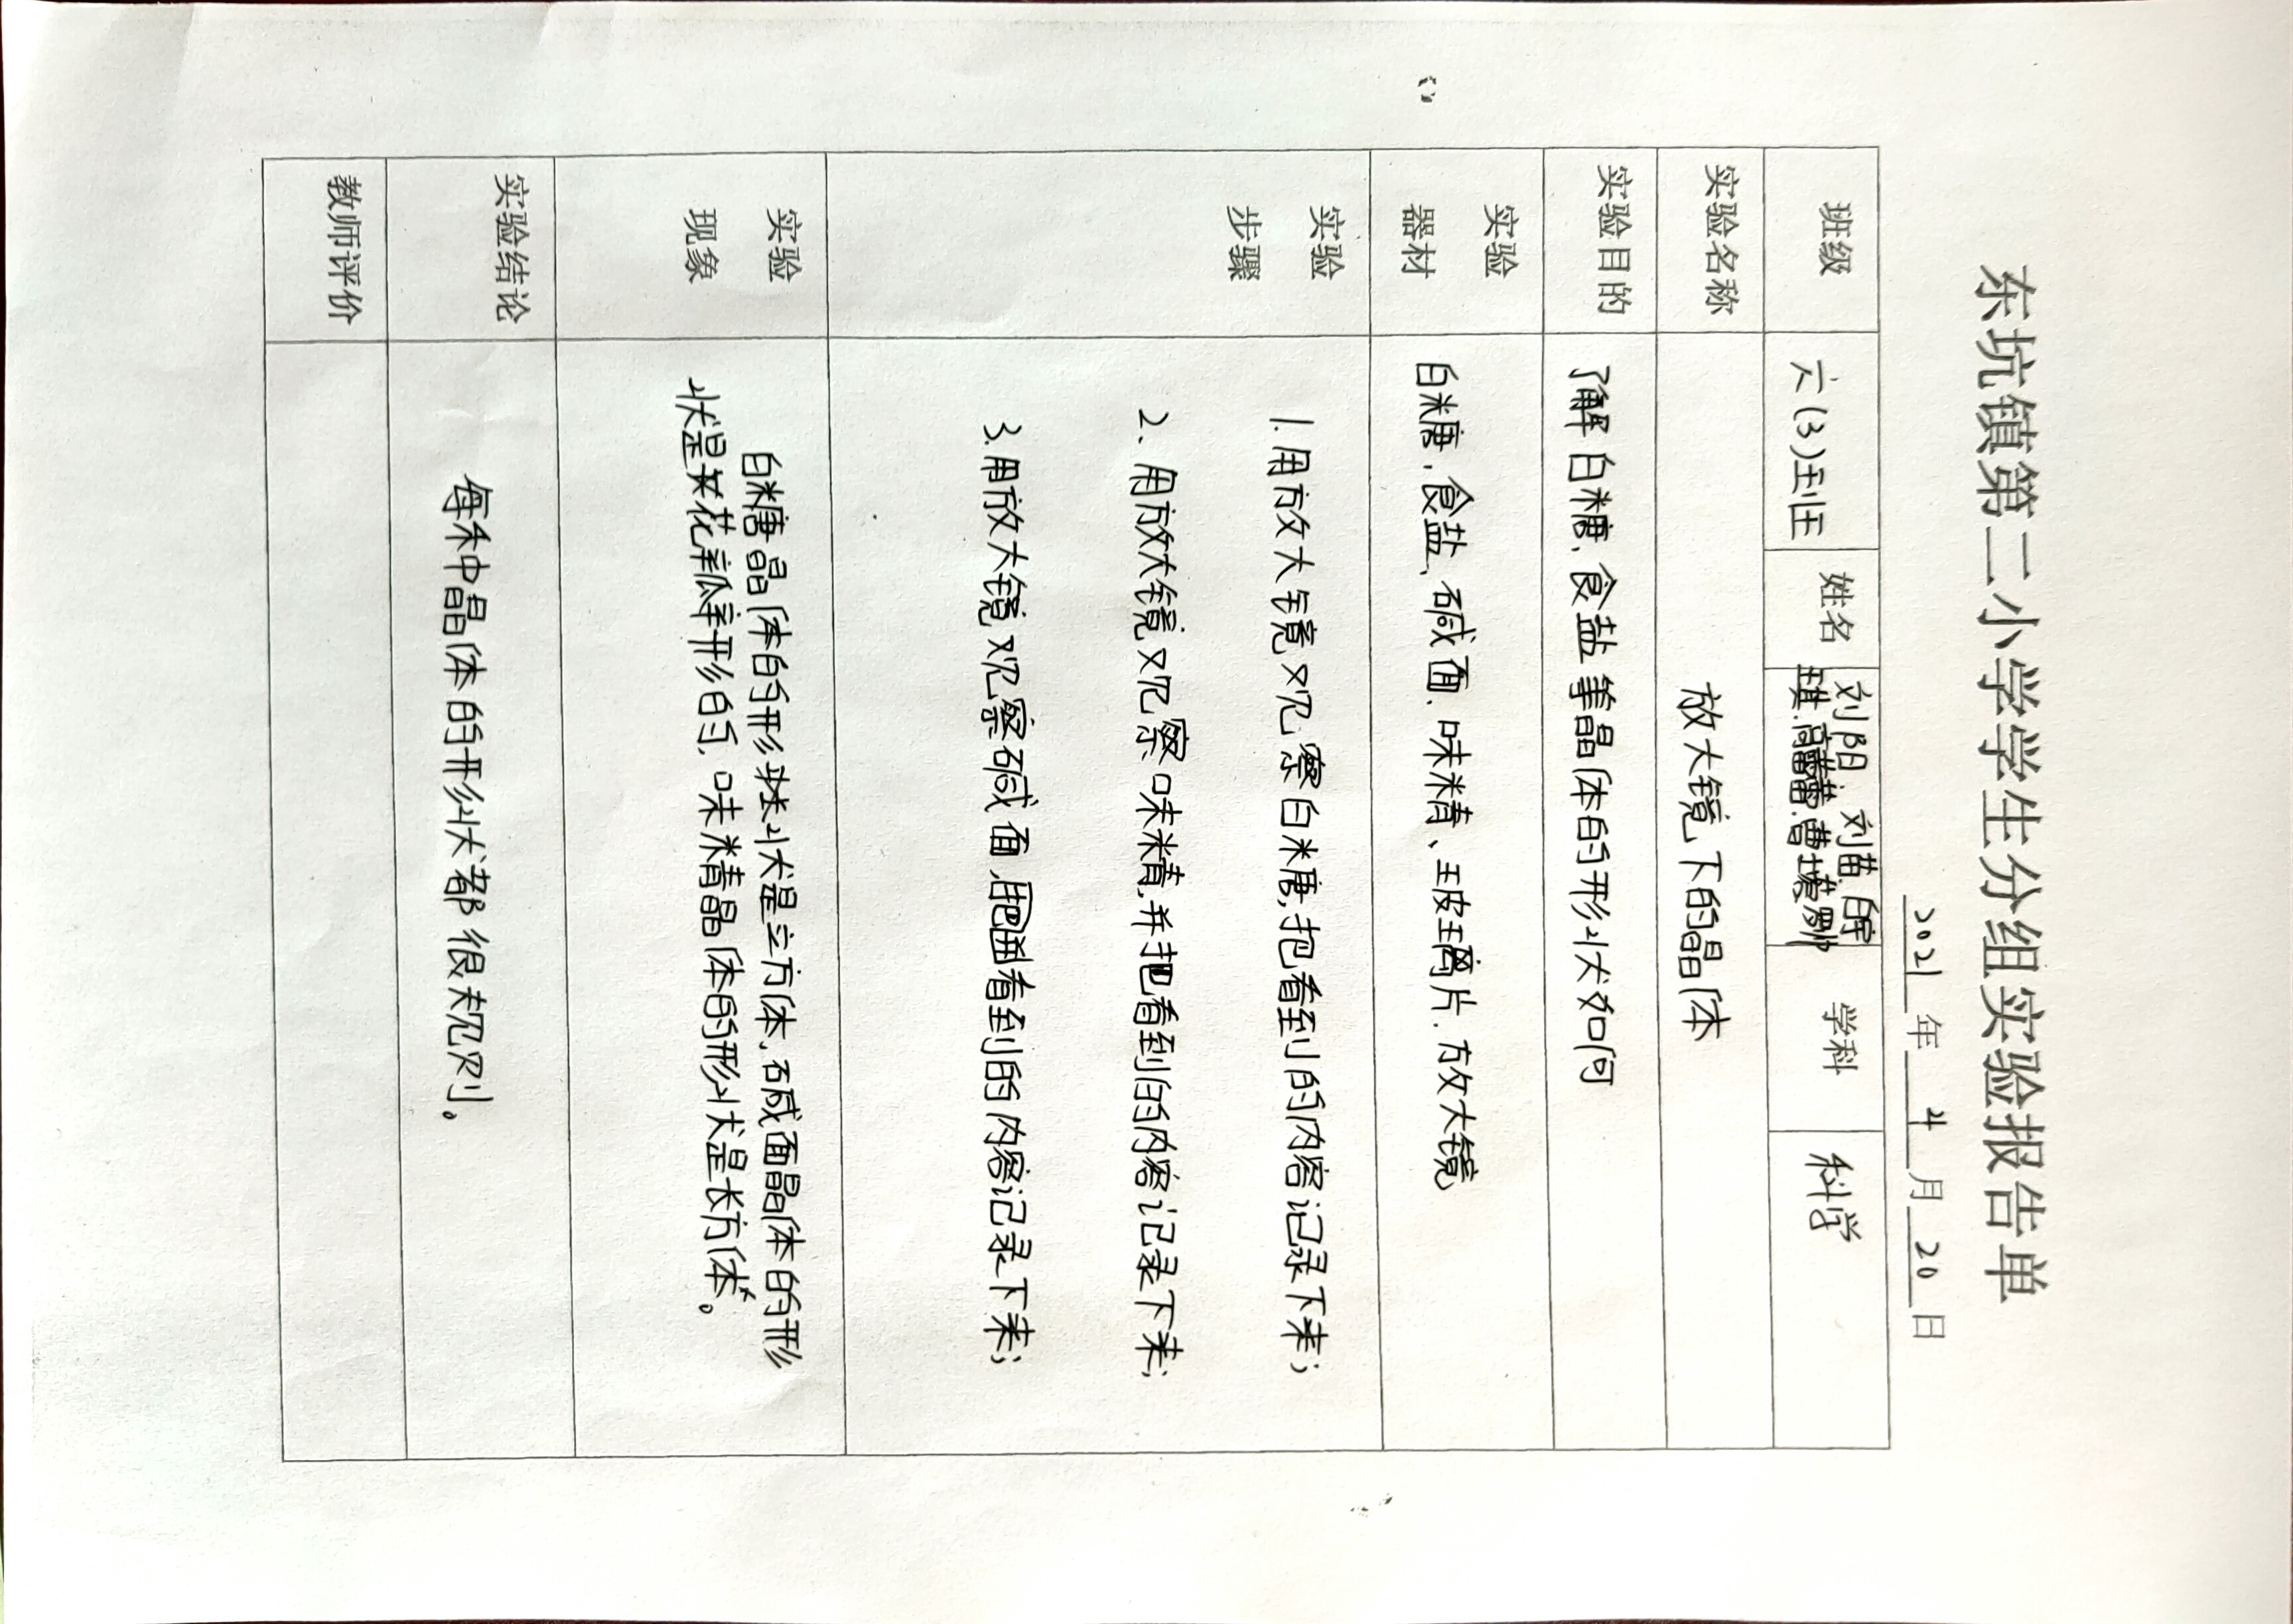 东坑镇第二小学学生分组实验报告单
2021 年 4 月 20 日
班级 六(3)班 姓名 刘阳 刘苗 白宇琪 高蕾蕾 曹 学科 科学
实验名称 放大镜下的晶体
实验目的 了解白糖、食盐等晶体的形状如何
实验器材 白糖、食盐、碱面、味精、玻璃片、放大镜
实验步骤
1.用放大镜观察白糖,把看到的内容记录下来;
2、用放大镜观察味精,并把看到的内容记录下来;
3.用放大镜观察碱面,把看到的内容记录下来;
实验现象
白糖晶体的形状是立方体,碱面晶体的形
状是花瓣形的,味精晶体的形状是长方体。
实验结论 每种晶体的形状都很规则。
教师评价